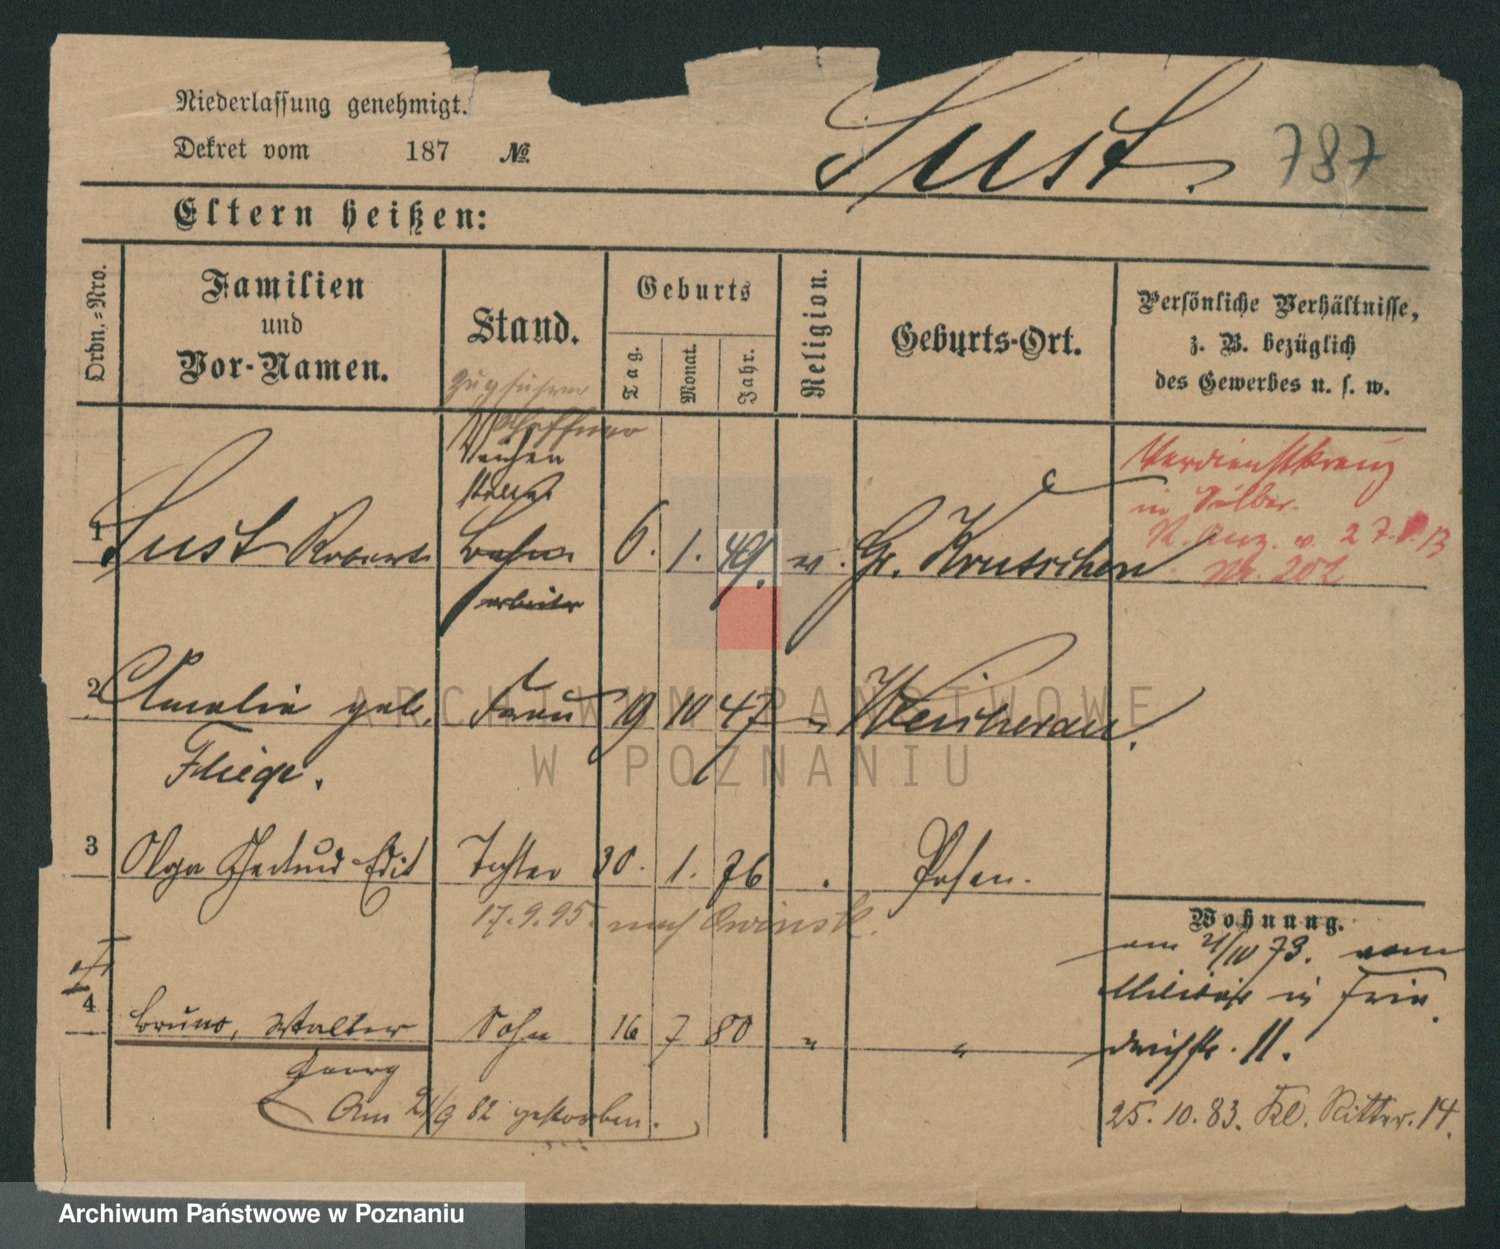 Niederlassung genehmigt.
Dekret vom 187 №
Just. 787
Eltern heißen:
Ordn.=Nro.
Familien
und
Vor-Namen.
Stand.
Geburts
Tag.
Monat.
Jahr.
Religion.
Geburts-Ort.
Persönliche Verhältnisse,
z. B. bezüglich
des Gewerbes u. s. w.
Zugführer
Weichen
steller
Verdienstkreuz
in Silber.
R. Anz. v. 27. 13
Nr. 202
1 Just Robert Bahn 6. 1. 49. ev. Gr. Krutschen
arbeiter
2 Amalie geb. Frau 19 10 47 " Weicherau.
Fliege.
3 Olga Edit Tochter 30. 1. 76 Posen.
17.9.95. nach Owinsk.
Wohnung.
am 21/10 73. vom
Militär in Frie
drichstr. 11.
4 Bruno, Walter Sohn 16 7 80 " "
Georg
Am 21/9 82 gestorben.
25. 10. 83. Kl. Ritter. 14.
ARCHIWUM PAŃSTWOWE
W POZNANIU
Archiwum Państwowe w Poznaniu